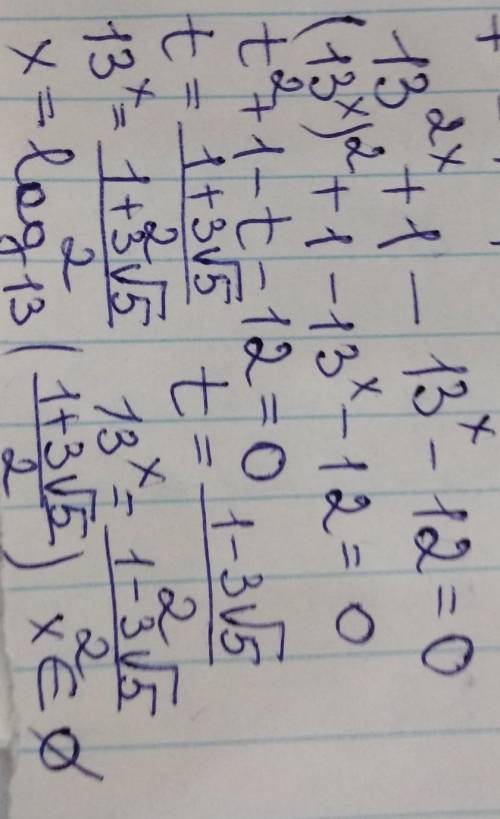 13^{2x} + 1 - 13^x - 12 = 0
(13^x)^2 + 1 - 13^x - 12 = 0
t^2 + 1 - t - 12 = 0
t = \frac{1+3\sqrt{5}}{2} t = \frac{1-3\sqrt{5}}{2}
13^x = \frac{1+3\sqrt{5}}{2} 13^x = \frac{1-3\sqrt{5}}{2}
x = log_{13} (\frac{1+3\sqrt{5}}{2}) x ∈ ∅